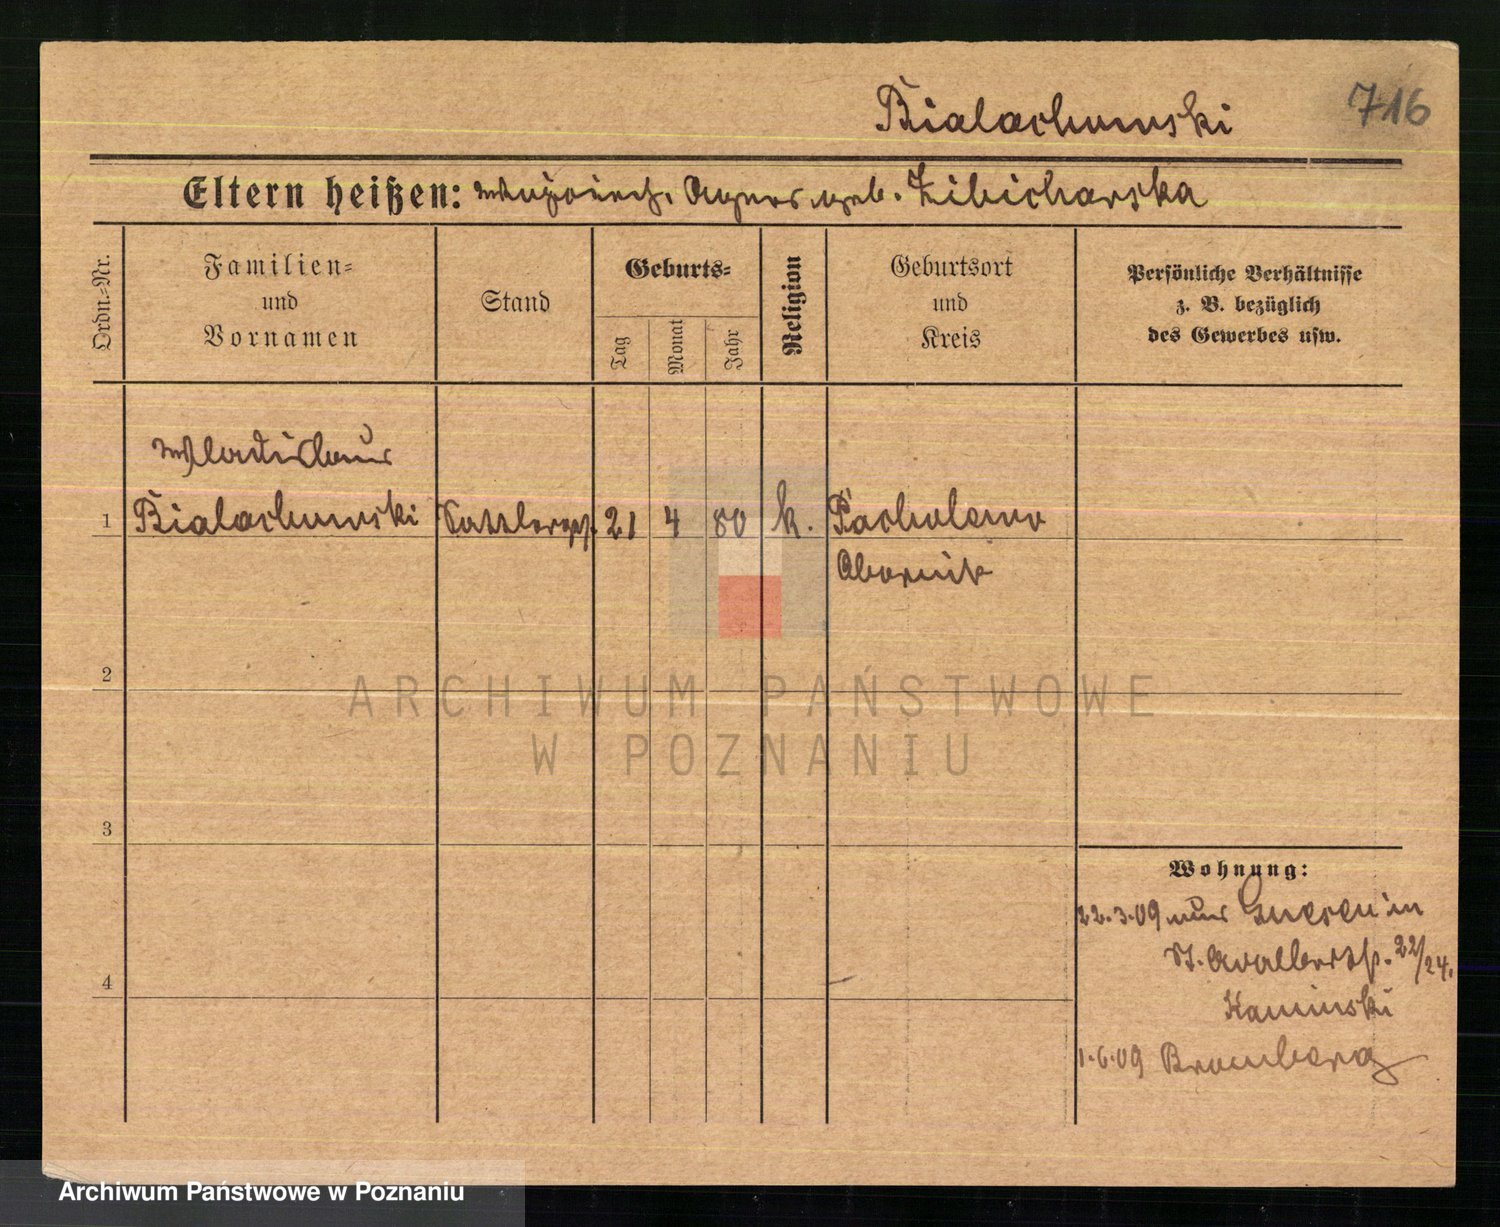 Bialachowski
716
Eltern heißen: Agnes geb. Zibicharska
Ordn.-Nr.
Familien-
und
Vornamen
Stand
Geburts-
Tag
Monat
Jahr
Religion
Geburtsort
und
Kreis
Persönliche Verhältnisse
z. B. bezüglich
des Gewerbes usw.
Wladislaus
1 Bialachowski Sattlerges. 21 4 80 k. Pacholewo
Obornik
2
ARCHIWUM PAŃSTWOWE
W POZNANIU
3
Wohnung:
22.3.09 aus Gnesen in
St. Adalbertstr. 22/24.
4
Kaminski
1.6.09 Bromberg
Archiwum Państwowe w Poznaniu